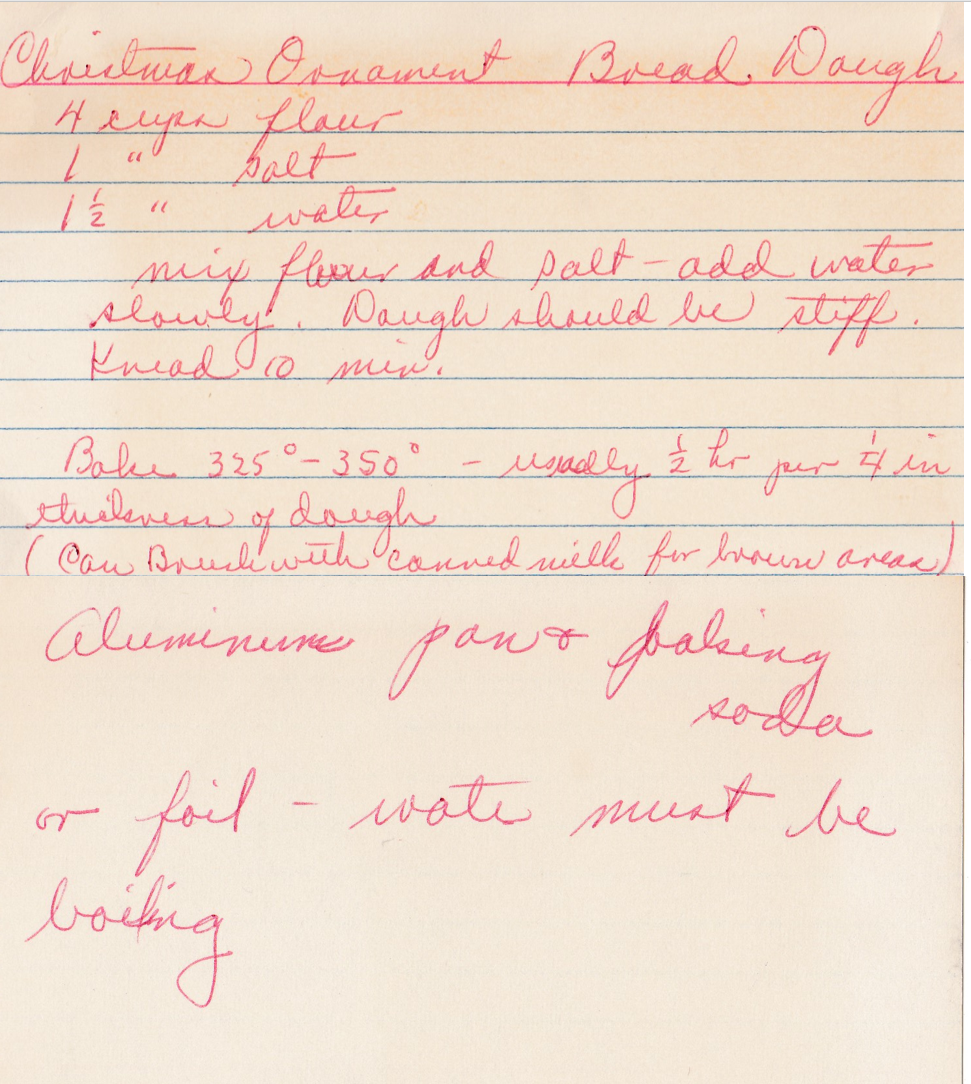 Christmas Ornament Bread Dough
4 cups flour
1 " salt
1 ½ " water
mix flour and salt - add water
slowly. Dough should be stiff.
Knead 10 min.
Bake 325° - 350° - usually ½ hr per ¼ in
thickness of dough
(Can Brush with canned milk for brown areas)
Aluminum pan & baking
soda
or foil - wate must be
boiling